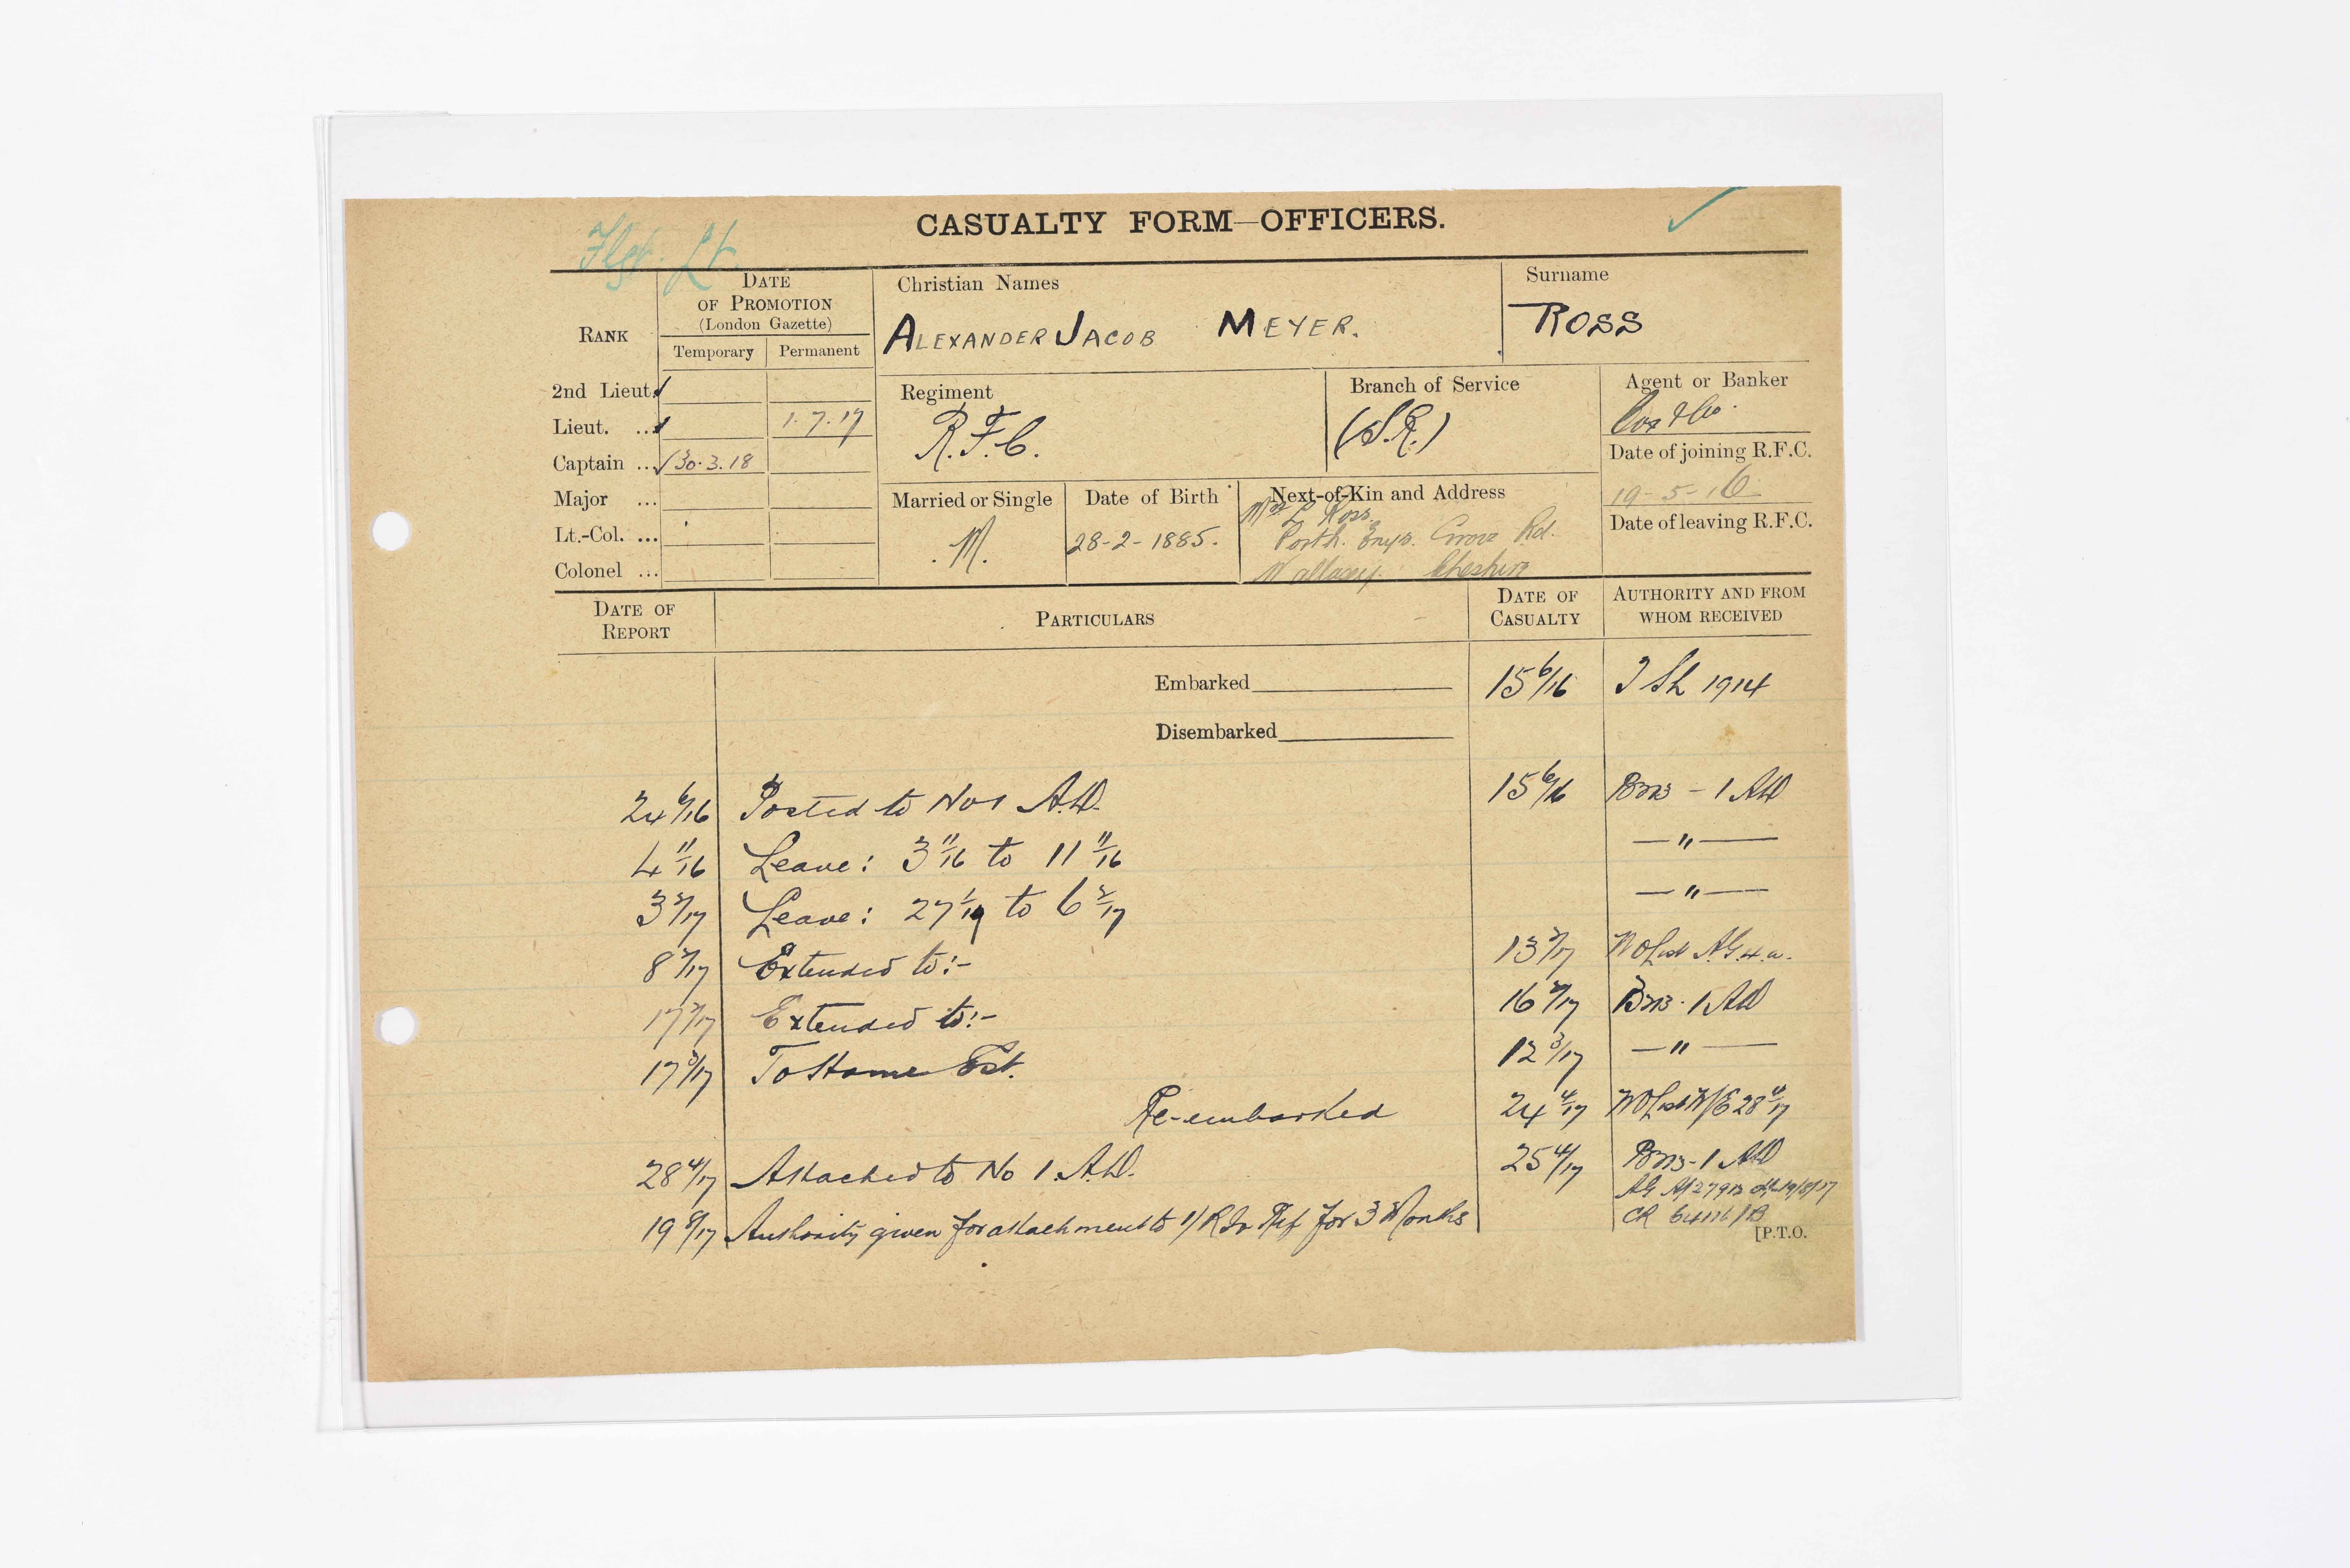 CASUALTY FORM—OFFICERS.
Lt.
RANK
DATE
OF PROMOTION
(London Gazette)
Temporary Permanent
Christian Names
ALEXANDER JACOB MEYER.
Surname
ROSS
2nd Lieut.
Lieut. ... 1.7.17
Captain ... 30.3.18
Major ...
Lt.-Col. ...
Colonel ...
Regiment
R.F.C.
Branch of Service
(S.R.)
Agent or Banker
Cox & Co.
Date of joining R.F.C.
19-5-16
Date of leaving R.F.C.
Married or Single
M.
Date of Birth
28-2-1885.
Next-of-Kin and Address
Mrs L Ross.
Porth. Enys. Grove Rd.
Wallasey. Cheshire
DATE OF REPORT PARTICULARS DATE OF CASUALTY AUTHORITY AND FROM WHOM RECEIVED
Embarked 15 6/16 1914
Disembarked
24 6/16 Posted to No 1 A.D. 15 6/16 B213 - 1 AD
4 11/16 Leave: 3 11/16 to 11 11/16 — " —
3 2/17 Leave: 27 1/17 to 6 2/17 — " —
8 2/17 Extended to:- 13 2/17 WO List A.G.4.a.
17 2/17 Extended to:- 16 2/17 B213 - 1 AD
17 3/17 To Home Est. 12 3/17 — " —
Re-embarked 24 4/17 WO List W/E 28 4/17
28 4/17 Attached to No 1 A.D. 25 4/17 B213 - 1 AD
19 8/17 Authority given for attachment to 1/ R for 3 Months
[P.T.O.